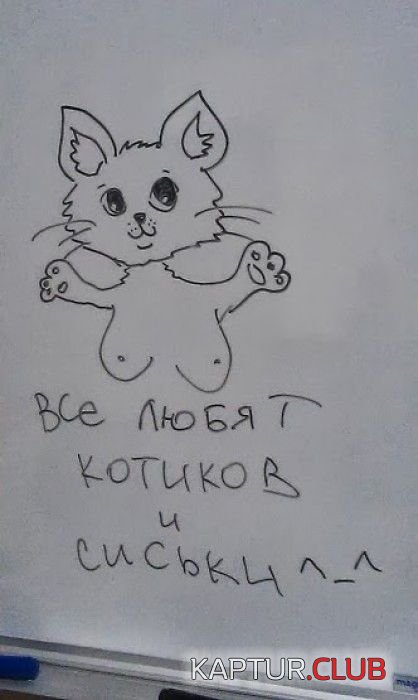 Все любят
котиков
и
сиськи ^_^
KAPTUR.CLUB